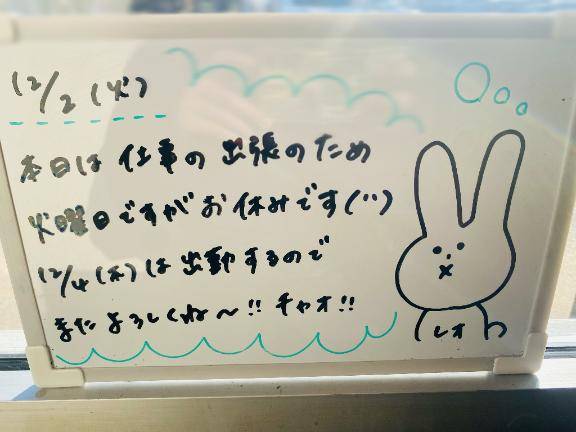 12/2 (火)
本日は 仕事の 出張のため
火曜日ですがお休みです(¨)
12/4 (木) は 出勤するので
またよろしくね〜!! チャオ!!
レオ